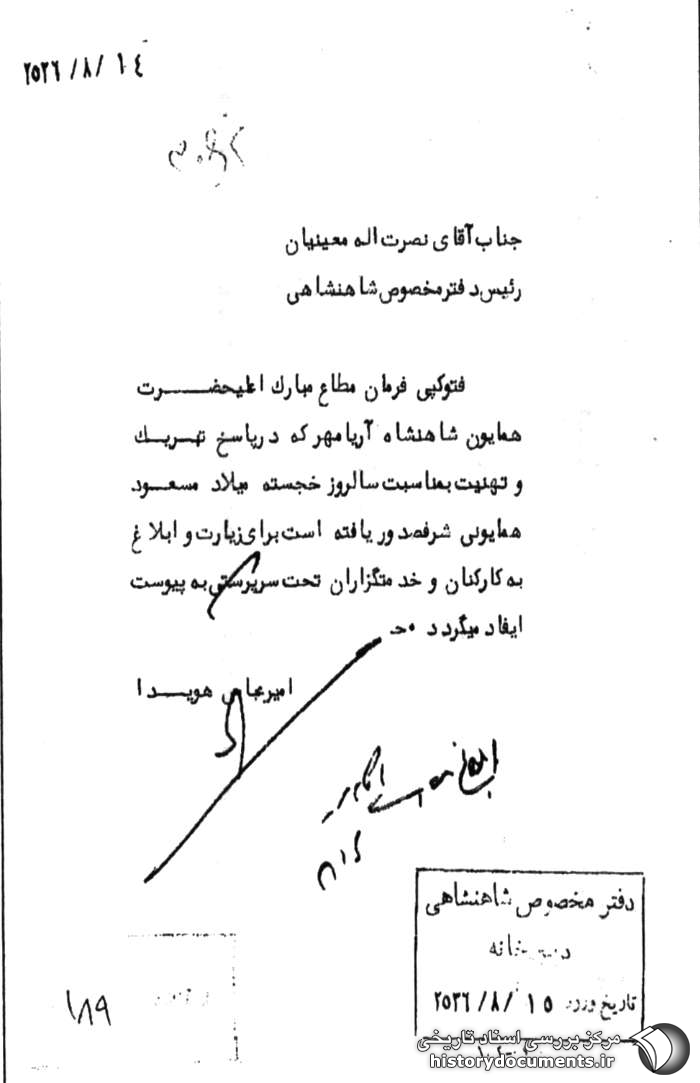 ۲۵۳۶/۸/۱۴
جناب آقای نصرت اله معینیان
رئیس دفتر مخصوص شاهنشاهی
فتوکپی فرمان مطاع مبارك اعلیحضرت
همایون شاهنشاه آریامهر که درپاسخ تبریك
و تهنیت بمناسبت سالروز خجسته میلاد مسعود
همایونی شرفصدور یافته است برای زیارت و ابلاغ
به کارکنان و خدمتگزاران تحت سرپرستی به پیوست
ایفاد میگردد
امیرعباس هویدا
دفتر مخصوص شاهنشاهی
دبیرخانه
تاریخ ورود ۲۵۳۶/۸/۱۵
۱۸۹
مرکز بررسی اسناد تاریخی
historydocuments.ir